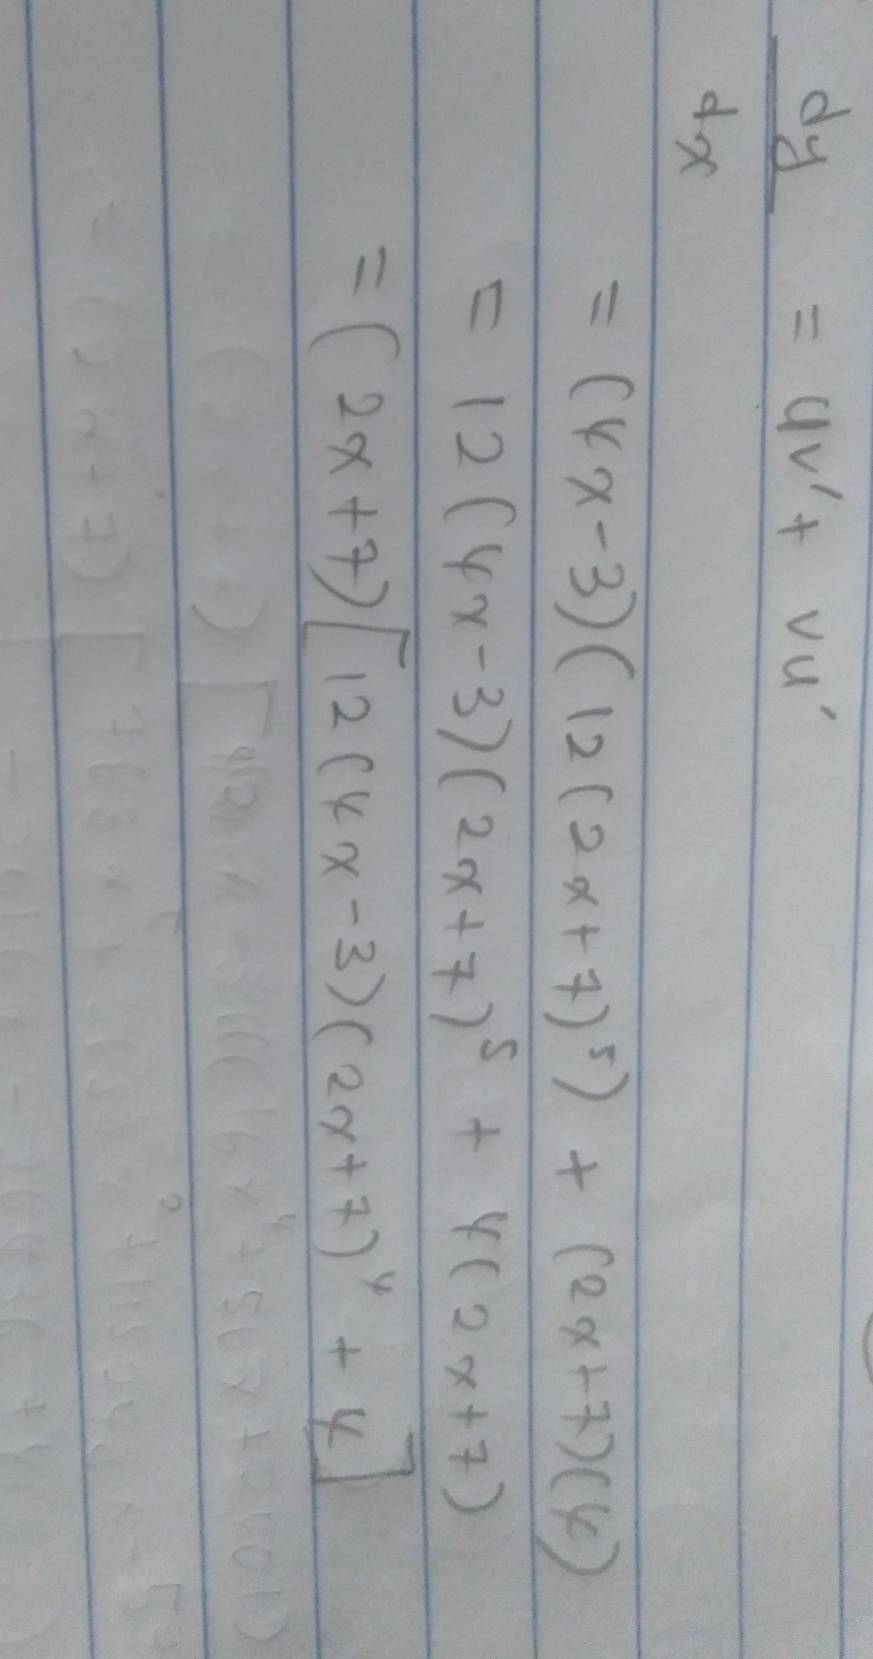 dy/dx = uv' + vu'
= (4x-3)(12(2x+7)⁵) + (2x+7)(4)
= 12(4x-3)(2x+7)⁵ + 4(2x+7)
= (2x+7)[12(4x-3)(2x+7)⁴ + 4]